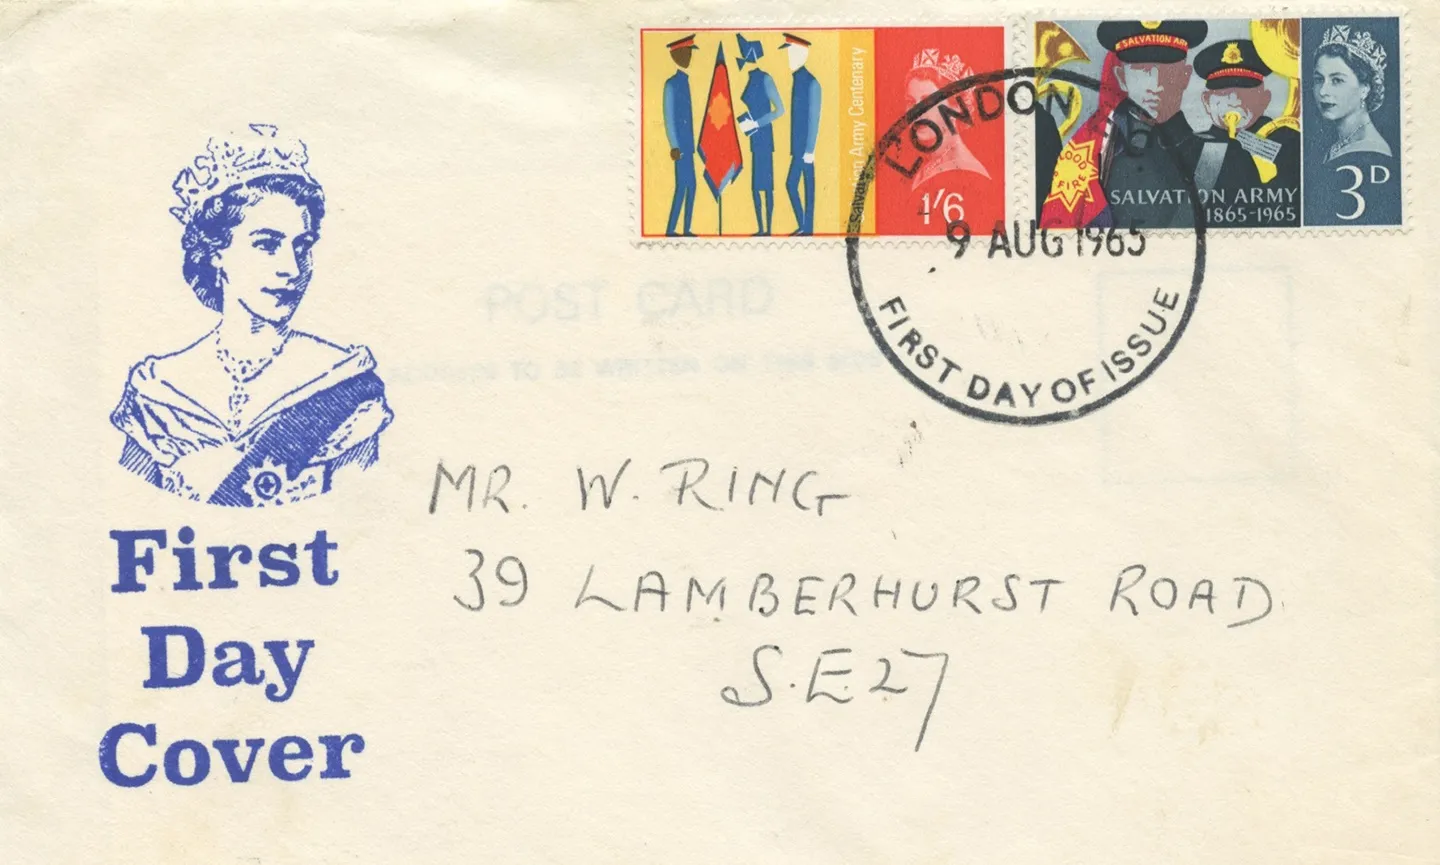 Salvation Army Centenary
1'6
SALVATION ARMY
BLOOD
FIRE
SALVATION ARMY
1865-1965
3D
LONDON
9 AUG 1965
FIRST DAY OF ISSUE
POST CARD
First
Day
Cover
MR. W. RING
39 LAMBERHURST ROAD
S.E.27